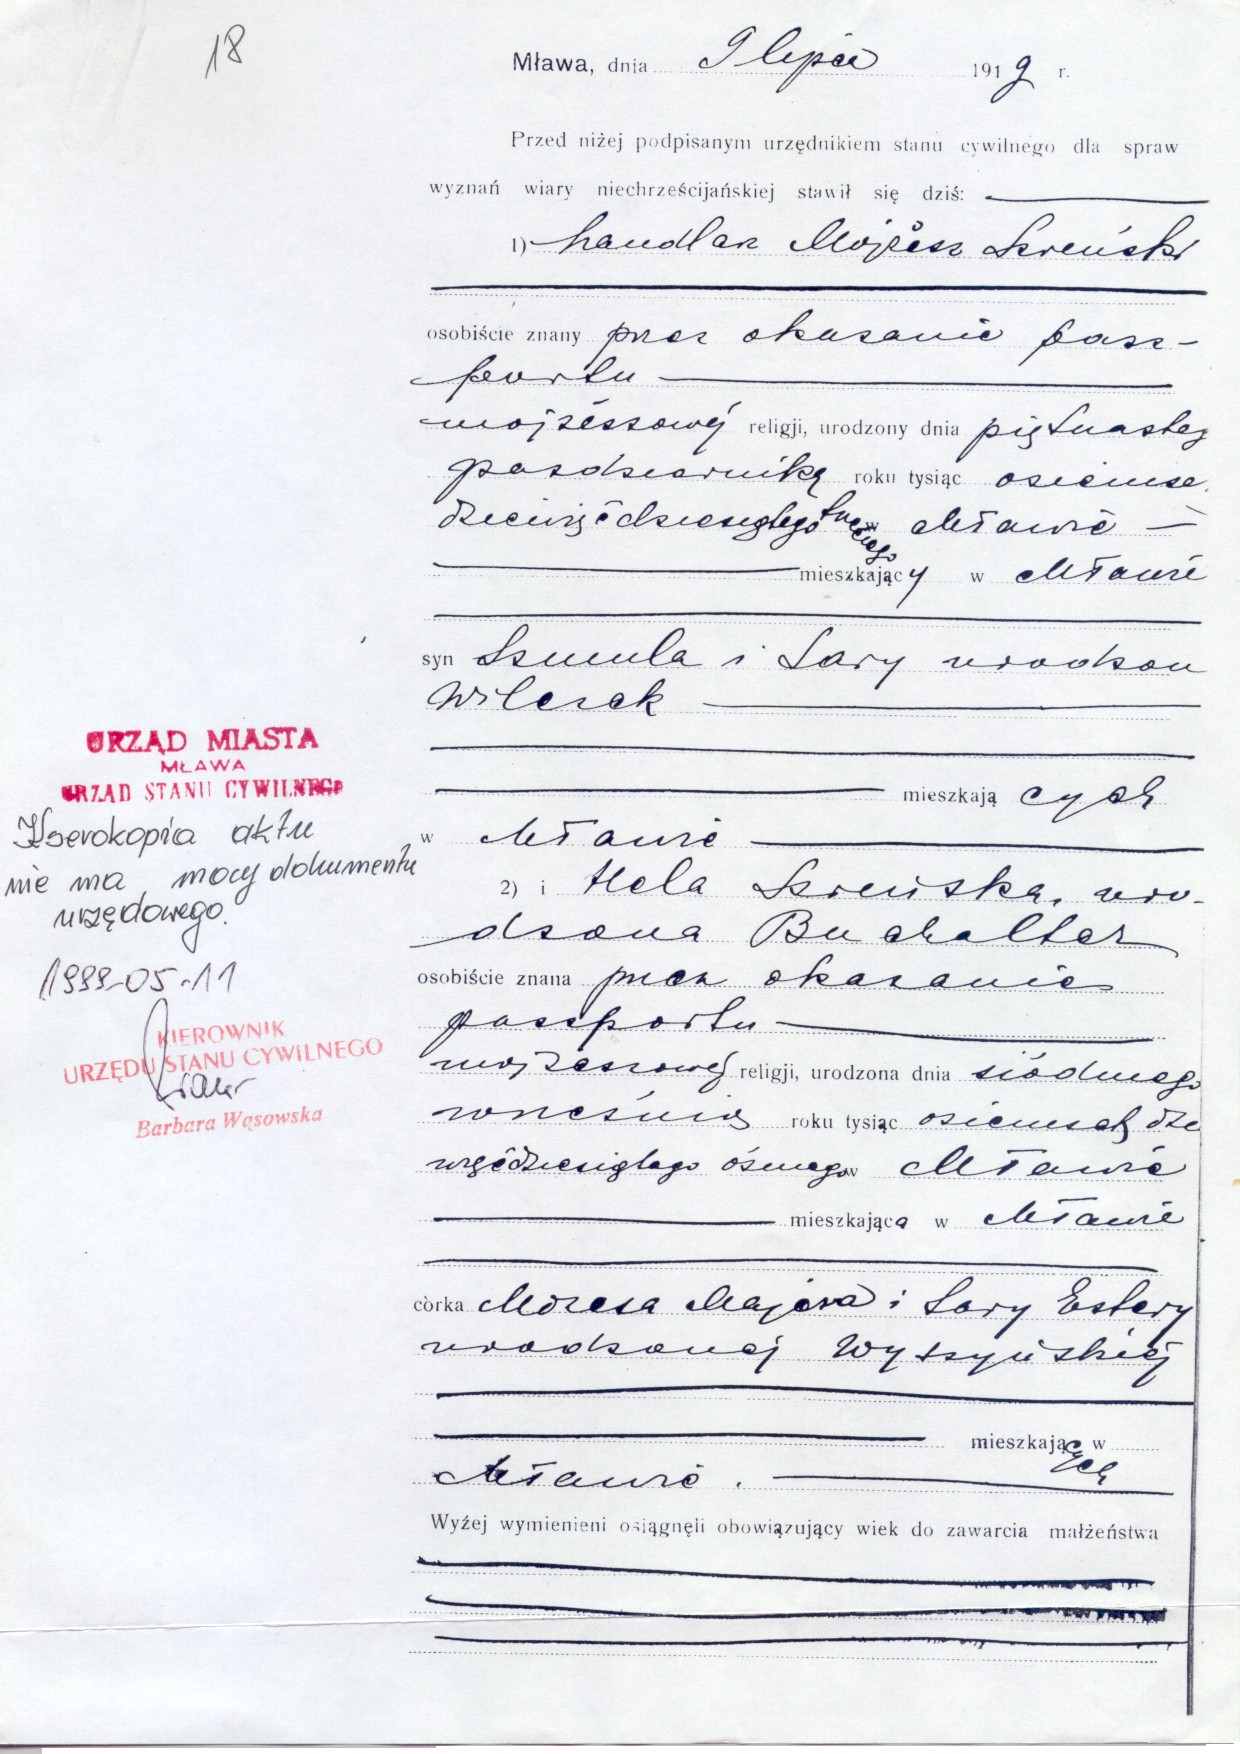 18
Mława, dnia 9 lipca 1919 r.
Przed niżej podpisanym urzędnikiem stanu cywilnego dla spraw
wyznań wiary niechrześcijańskiej stawił się dziś:
1) handlarz Mojżesz Szreński
osobiście znany przez okazanie pass-
portu
mojżeszowéj religji, urodzony dnia piętnasteg
pazdziernika roku tysiąc osiemse
dziewięćdziesiątego trzeciego w Mławie
mieszkający w Mławie
syn Szmula i Sary urodzon
Wilczek
mieszkają cych
w Mławie
2) i Hela Szreńska, uro-
dzona Buchalter
osobiście znana przez okazanie
passportu
mojżeszowéj religji, urodzona dnia siódmego
września roku tysiąc osiemset dzie
więćdziesiątego ósmego w Mławie
mieszkająca w Mławie
còrka Mozesa Majera i Sary Estery
urodzonej Wyszyńskiéj
mieszkających w
Mławie.
Wyżej wymienieni osiągnęli obowiązujący wiek do zawarcia małżeństwa
URZĄD MIASTA
MŁAWA
URZĄD STANU CYWILNEGO
Kserokopia aktu
nie ma mocy dokumentu
urzędowego.
1999-05-11
KIEROWNIK
URZĘDU STANU CYWILNEGO
Barbara Wąsowska